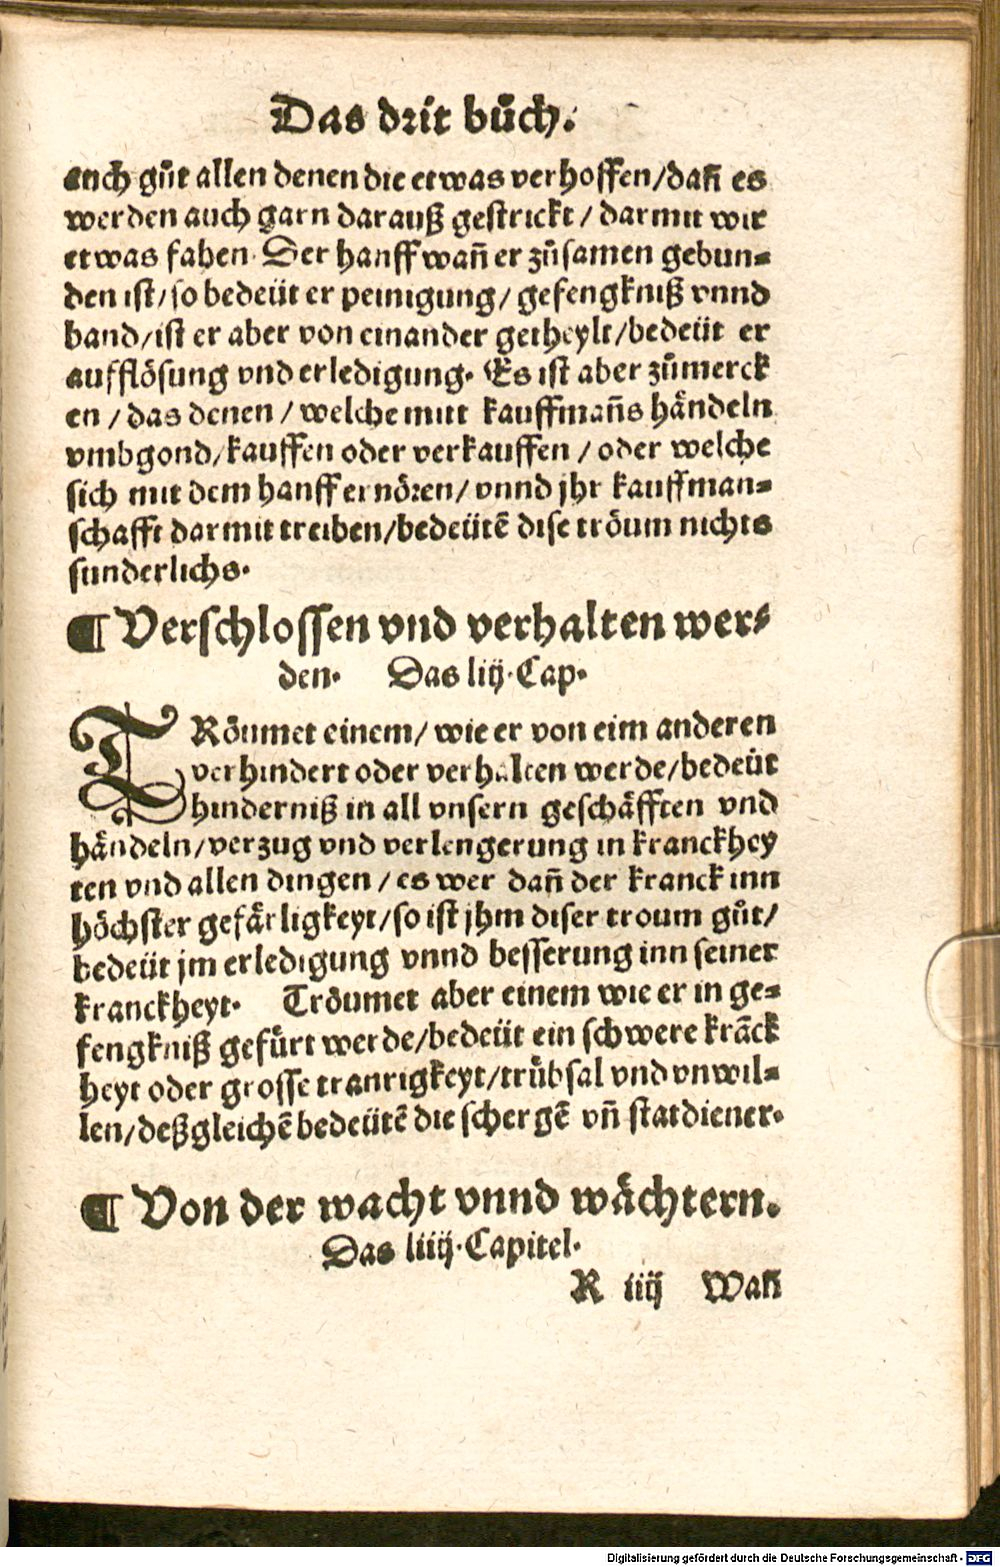 Das drit bůch.
auch gůt allen denen die etwas verhoffen/dañ es
werden auch garn darauß gestrickt/darmit wir
etwas fahen. Der hanff wañ er zůsamen gebun-
den ist/so bedeüt er peinigung/gefengkniß vnnd
band/ist er aber von einander getheylt/bedeüt er
aufflösung vnd erledigung. Es ist aber zůmerck
en/das denen/welche mitt kauffmañs händeln
vmbgond/kauffen oder verkauffen/oder welche
sich mit dem hanff ernören/vnnd jhr kauffman-
schafft darmit treiben/bedeütē dise tröum nichts
sunderlichs.
¶ Verschlossen vnd verhalten wer-
den. Das liij. Cap.
TRöumet einem/wie er von eim anderen
verhindert oder verhalten werde/bedeüt
hinderniß in all vnsern geschäfften vnd
händeln/verzug vnd verlengerung in kranckhey
ten vnd allen dingen/es wer dañ der kranck inn
höchster gefärligkeyt/so ist jhm diser troum gůt/
bedeüt jm erledigung vnnd besserung inn seiner
kranckheyt. Tröumet aber einem wie er in ge-
fengkniß gefürt werde/bedeüt ein schwere krāck
heyt oder grosse traurigkeyt/trübsal vnd vnwil-
len/deßgleichē bedeütē die schergē vñ statdiener.
¶ Von der wacht vnnd wächtern.
Das liiij. Capitel.
R iiij Wañ
Digitalisierung gefördert durch die Deutsche Forschungsgemeinschaft - DFG